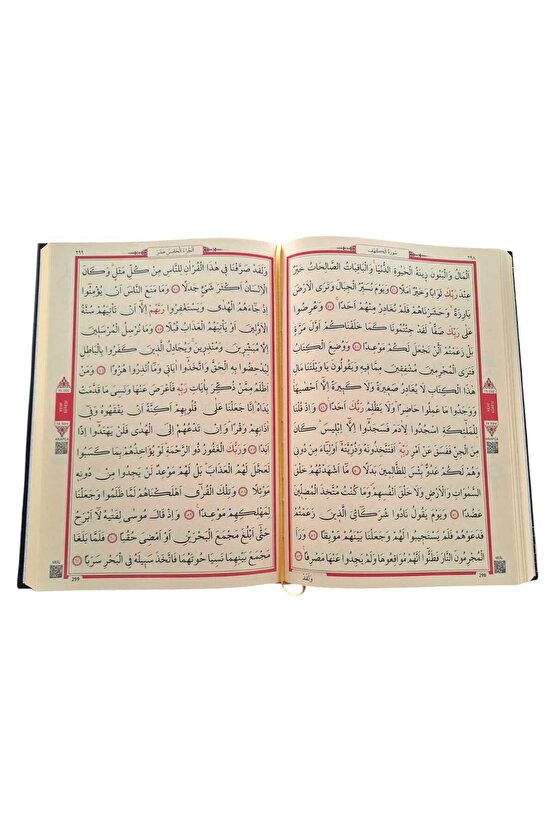 ٢٩٨
سُورَةُ الْكَهْفِ
اَلْمَالُ وَالْبَنُونَ زِينَةُ الْحَيٰوةِ الدُّنْيَا وَالْبَاقِيَاتُ الصَّالِحَاتُ خَيْرٌ
عِنْدَ رَبِّكَ ثَوَابًا وَخَيْرٌ اَمَلًا ﴿٤٦﴾ وَيَوْمَ نُسَيِّرُ الْجِبَالَ وَتَرَى الْاَرْضَ
بَارِزَةً وَحَشَرْنَاهُمْ فَلَمْ نُغَادِرْ مِنْهُمْ اَحَدًا ﴿٤٧﴾ وَعُرِضُوا
عَلٰى رَبِّكَ صَفًّا لَقَدْ جِئْتُمُونَا كَمَا خَلَقْنَاكُمْ اَوَّلَ مَرَّةٍ
بَلْ زَعَمْتُمْ اَلَّنْ نَجْعَلَ لَكُمْ مَوْعِدًا ﴿٤٨﴾ وَوُضِعَ الْكِتَابُ
فَتَرَى الْمُجْرِمِينَ مُشْفِقِينَ مِمَّا فِيهِ وَيَقُولُونَ يَا وَيْلَتَنَا مَالِ
هٰذَا الْكِتَابِ لَا يُغَادِرُ صَغِيرَةً وَلَا كَبِيرَةً اِلَّا اَحْصٰيهَا
وَوَجَدُوا مَا عَمِلُوا حَاضِرًا وَلَا يَظْلِمُ رَبُّكَ اَحَدًا ﴿٤٩﴾ وَاِذْ قُلْنَا
لِلْمَلٰئِكَةِ اسْجُدُوا لِاٰدَمَ فَسَجَدُوا اِلَّا اِبْلِيسَ كَانَ
مِنَ الْجِنِّ فَفَسَقَ عَنْ اَمْرِ رَبِّهِ اَفَتَتَّخِذُونَهُ وَذُرِّيَّتَهُ اَوْلِيَاءَ مِنْ دُونِي
وَهُمْ لَكُمْ عَدُوٌّ بِئْسَ لِلظَّالِمِينَ بَدَلًا ﴿٥٠﴾ مَا اَشْهَدْتُهُمْ خَلْقَ
السَّمٰوَاتِ وَالْاَرْضِ وَلَا خَلْقَ اَنْفُسِهِمْ وَمَا كُنْتُ مُتَّخِذَ الْمُضِلِّينَ
عَضُدًا ﴿٥١﴾ وَيَوْمَ يَقُولُ نَادُوا شُرَكَائِيَ الَّذِينَ زَعَمْتُمْ
فَدَعَوْهُمْ فَلَمْ يَسْتَجِيبُوا لَهُمْ وَجَعَلْنَا بَيْنَهُمْ مَوْبِقًا ﴿٥٢﴾ وَرَاَ
الْمُجْرِمُونَ النَّارَ فَظَنُّوا اَنَّهُمْ مُوَاقِعُوهَا وَلَمْ يَجِدُوا عَنْهَا مَصْرِفًا ﴿٥٣﴾
298
وَلَقَدْ
اَلْجُزْءُ الْخَامِسُ عَشَرَ
٢٩٩
وَلَقَدْ صَرَّفْنَا فِي هٰذَا الْقُرْاٰنِ لِلنَّاسِ مِنْ كُلِّ مَثَلٍ وَكَانَ
الْاِنْسَانُ اَكْثَرَ شَيْءٍ جَدَلًا ﴿٥٤﴾ وَمَا مَنَعَ النَّاسَ اَنْ يُؤْمِنُوا
اِذْ جَاءَهُمُ الْهُدٰى وَيَسْتَغْفِرُوا رَبَّهُمْ اِلَّا اَنْ تَأْتِيَهُمْ سُنَّةُ
الْاَوَّلِينَ اَوْ يَأْتِيَهُمُ الْعَذَابُ قُبُلًا ﴿٥٥﴾ وَمَا نُرْسِلُ الْمُرْسَلِينَ
اِلَّا مُبَشِّرِينَ وَمُنْذِرِينَ وَيُجَادِلُ الَّذِينَ كَفَرُوا بِالْبَاطِلِ
لِيُدْحِضُوا بِهِ الْحَقَّ وَاتَّخَذُوا اٰيَاتِي وَمَا اُنْذِرُوا هُزُوًا ﴿٥٦﴾ وَمَنْ
اَظْلَمُ مِمَّنْ ذُكِّرَ بِاٰيَاتِ رَبِّهِ فَاَعْرَضَ عَنْهَا وَنَسِيَ مَا قَدَّمَتْ
يَدَاهُ اِنَّا جَعَلْنَا عَلٰى قُلُوبِهِمْ اَكِنَّةً اَنْ يَفْقَهُوهُ وَفِي
اٰذَانِهِمْ وَقْرًا وَاِنْ تَدْعُهُمْ اِلَى الْهُدٰى فَلَنْ يَهْتَدُوا اِذًا
اَبَدًا ﴿٥٧﴾ وَرَبُّكَ الْغَفُورُ ذُو الرَّحْمَةِ لَوْ يُؤَاخِذُهُمْ بِمَا كَسَبُوا
لَعَجَّلَ لَهُمُ الْعَذَابَ بَلْ لَهُمْ مَوْعِدٌ لَنْ يَجِدُوا مِنْ دُونِهِ
مَوْئِلًا ﴿٥٨﴾ وَتِلْكَ الْقُرٰى اَهْلَكْنَاهُمْ لَمَّا ظَلَمُوا وَجَعَلْنَا
لِمَهْلِكِهِمْ مَوْعِدًا ﴿٥٩﴾ وَاِذْ قَالَ مُوسٰى لِفَتٰيهُ لَا اَبْرَحُ
حَتّٰى اَبْلُغَ مَجْمَعَ الْبَحْرَيْنِ اَوْ اَمْضِيَ حُقُبًا ﴿٦٠﴾ فَلَمَّا بَلَغَا
مَجْمَعَ بَيْنِهِمَا نَسِيَا حُوتَهُمَا فَاتَّخَذَ سَبِيلَهُ فِي الْبَحْرِ سَرَبًا ﴿٦١﴾
299